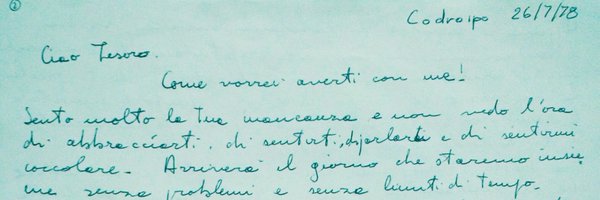 2
Codroipo 26/7/78
Ciao Tesoro.
Come vorrei averti con me!
Sento molto la Tua mancanza e non vedo l'ora
di abbracciarti, di sentirti, di parlarti e di sentirmi
coccolare. Arriverà il giorno che staremo insie
me senza problemi e senza limiti di tempo.